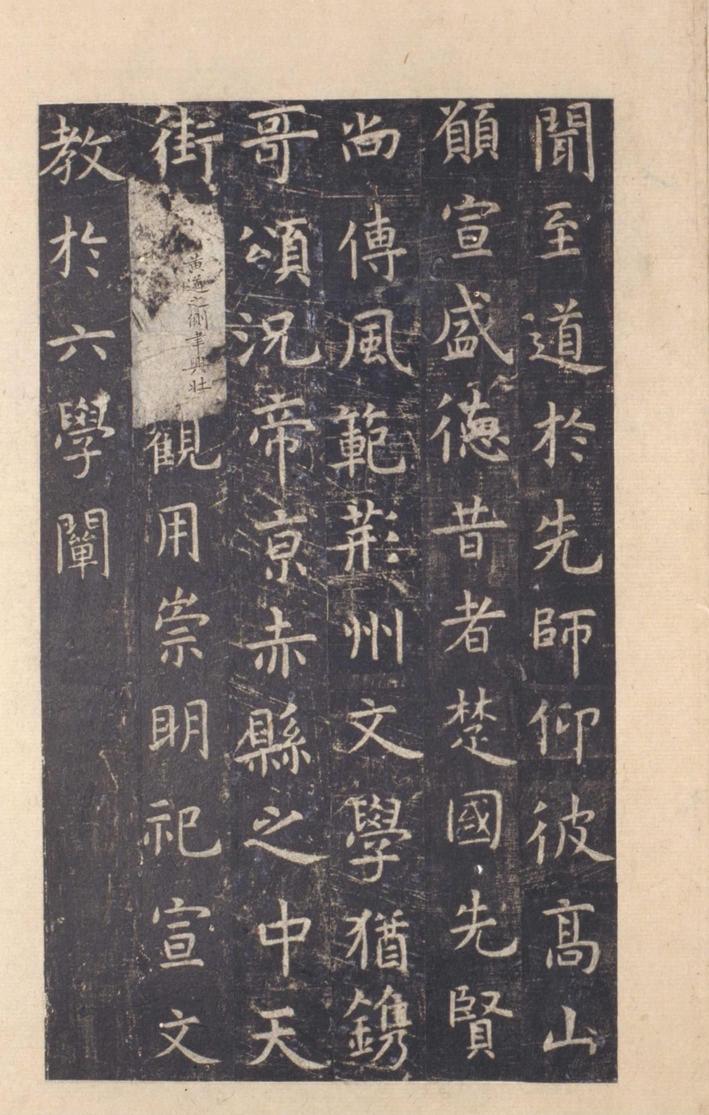 聞至道於先師仰彼髙山
願宣盛德昔者楚國先賢
尚傳風範荊州文學猶鐫
哥頌況帝京赤縣之中天
街黄道之側聿興壮觀用崇明祀宣文
教於六學闡